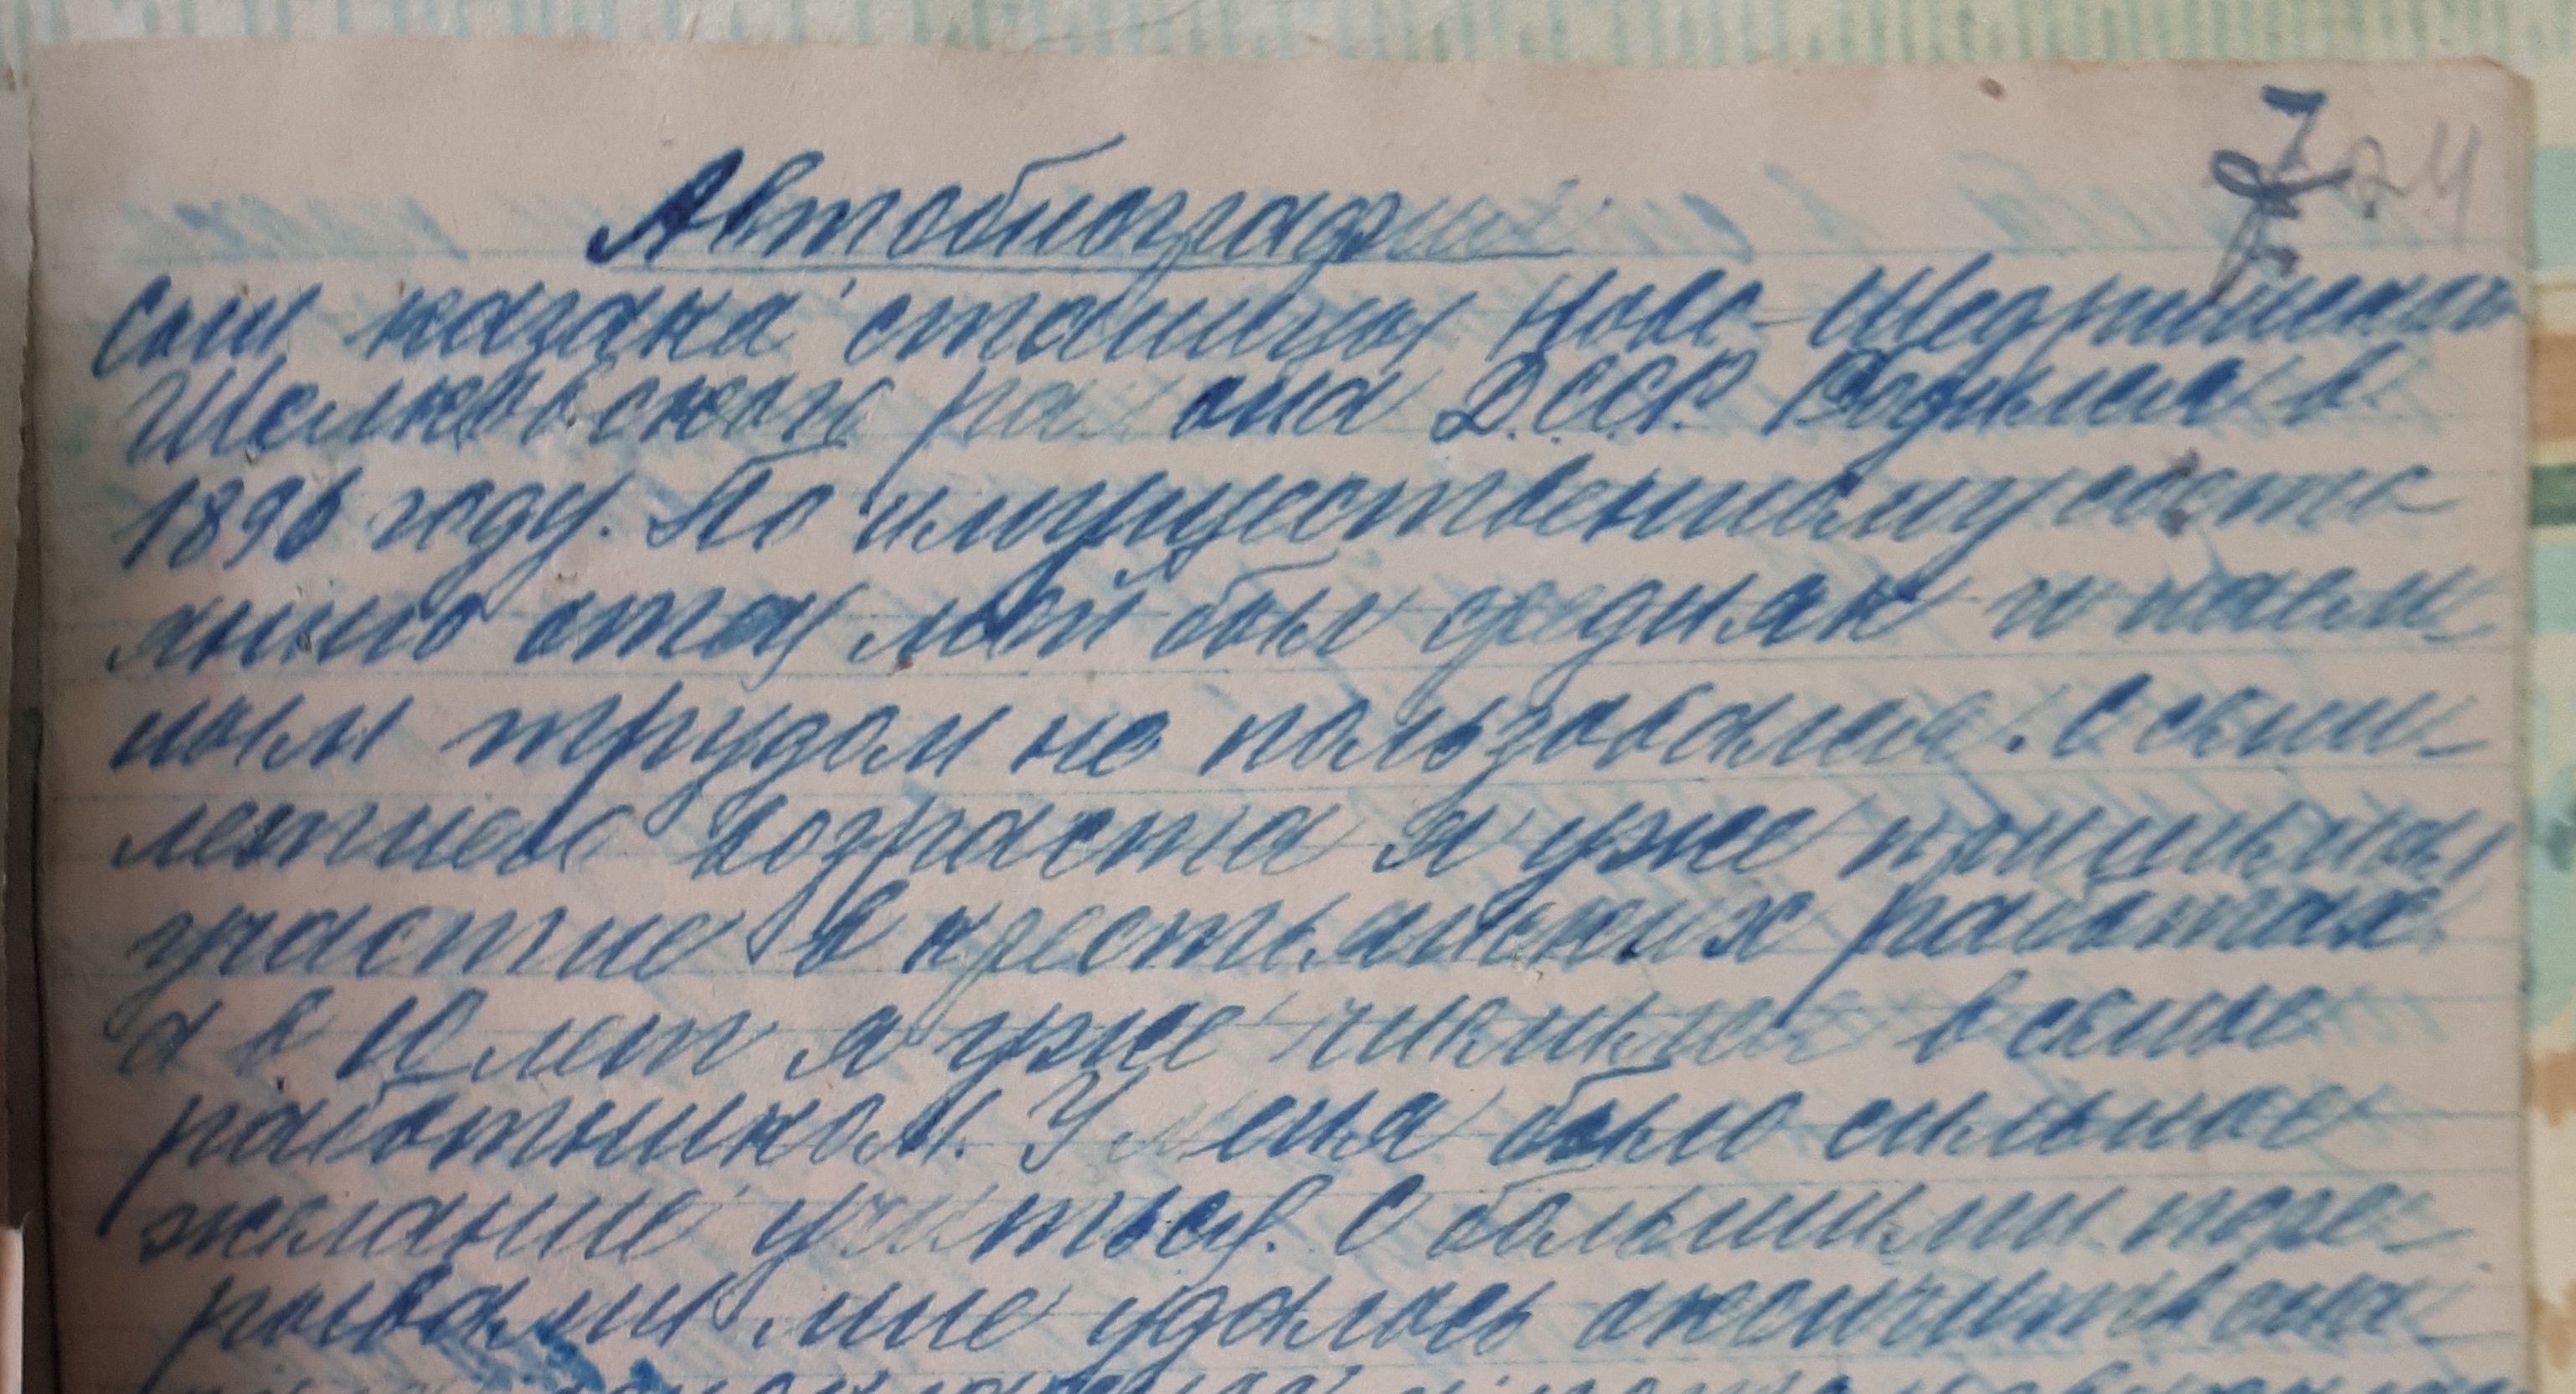 Автобиография
Сын казака станицы Ново-Щедринской
Шелковского района Д.С.С.Р. Родился в
1896 году. По имущественному состо-
янию отец мой был средняк и наем-
ным трудом не пользовался. С семи-
летнего возраста я уже принимал
участие в крестьянских работах,
а в 12 лет я уже числился в семье
работником. У меня было сильное
желание учиться. С большими пере-
рывами мне удалось окончить